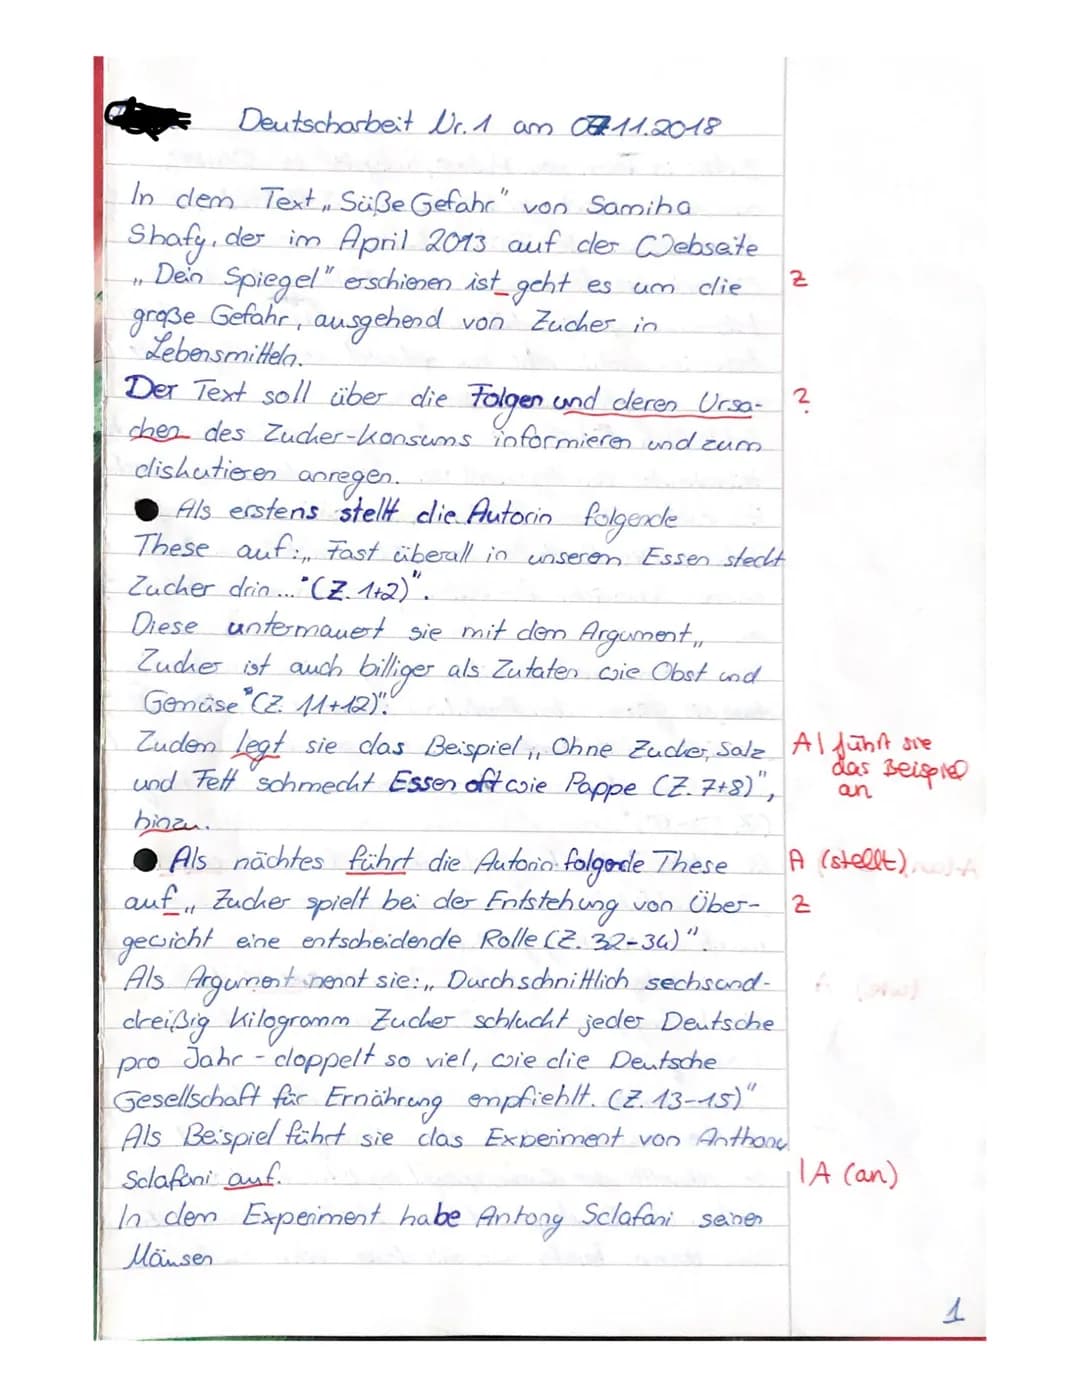 Deutscharbeit Nr. 1 am 07.11.2018
In dem Text „Süße Gefahr" von Samiha
Shafy, der im April 2013 auf der Webseite
„Dein Spiegel" erschienen ist geht es um die Z
große Gefahr, ausgehend von Zucker in
Lebensmitteln.
Der Text soll über die Folgen und deren Ursa- ?
chen des Zucker-Konsums informieren und zum
diskutieren anregen.
Als erstens stellt die Autorin folgende
These auf: „Fast überall in unserem Essen steckt
Zucker drin..." (Z. 1+2)".
Diese untermauert sie mit dem Argument „
Zucker ist auch billiger als Zutaten wie Obst und
Gemüse" (Z. 11+12)".
Zudem legt sie das Beispiel „Ohne Zucker, Salz A| führt sie das Beispiel an
und Fett schmeckt Essen oft wie Pappe (Z. 7+8)",
hinzu.
Als nächtes führt die Autorin folgende These A (stellt)
auf „Zucker spielt bei der Entstehung von Über- Z
gewicht eine entscheidende Rolle (Z. 32-34)".
Als Argument nennt sie: „Durchschnittlich sechsund-
dreißig Kilogramm Zucker schluckt jeder Deutsche
pro Jahr - doppelt so viel, wie die Deutsche
Gesellschaft für Ernährung empfiehlt. (Z. 13-15)"
Als Beispiel führt sie das Experiment von Anthony
Sclafani auf. |A (an)
In dem Experiment habe Antony Sclafani seinen
Mäusen
1